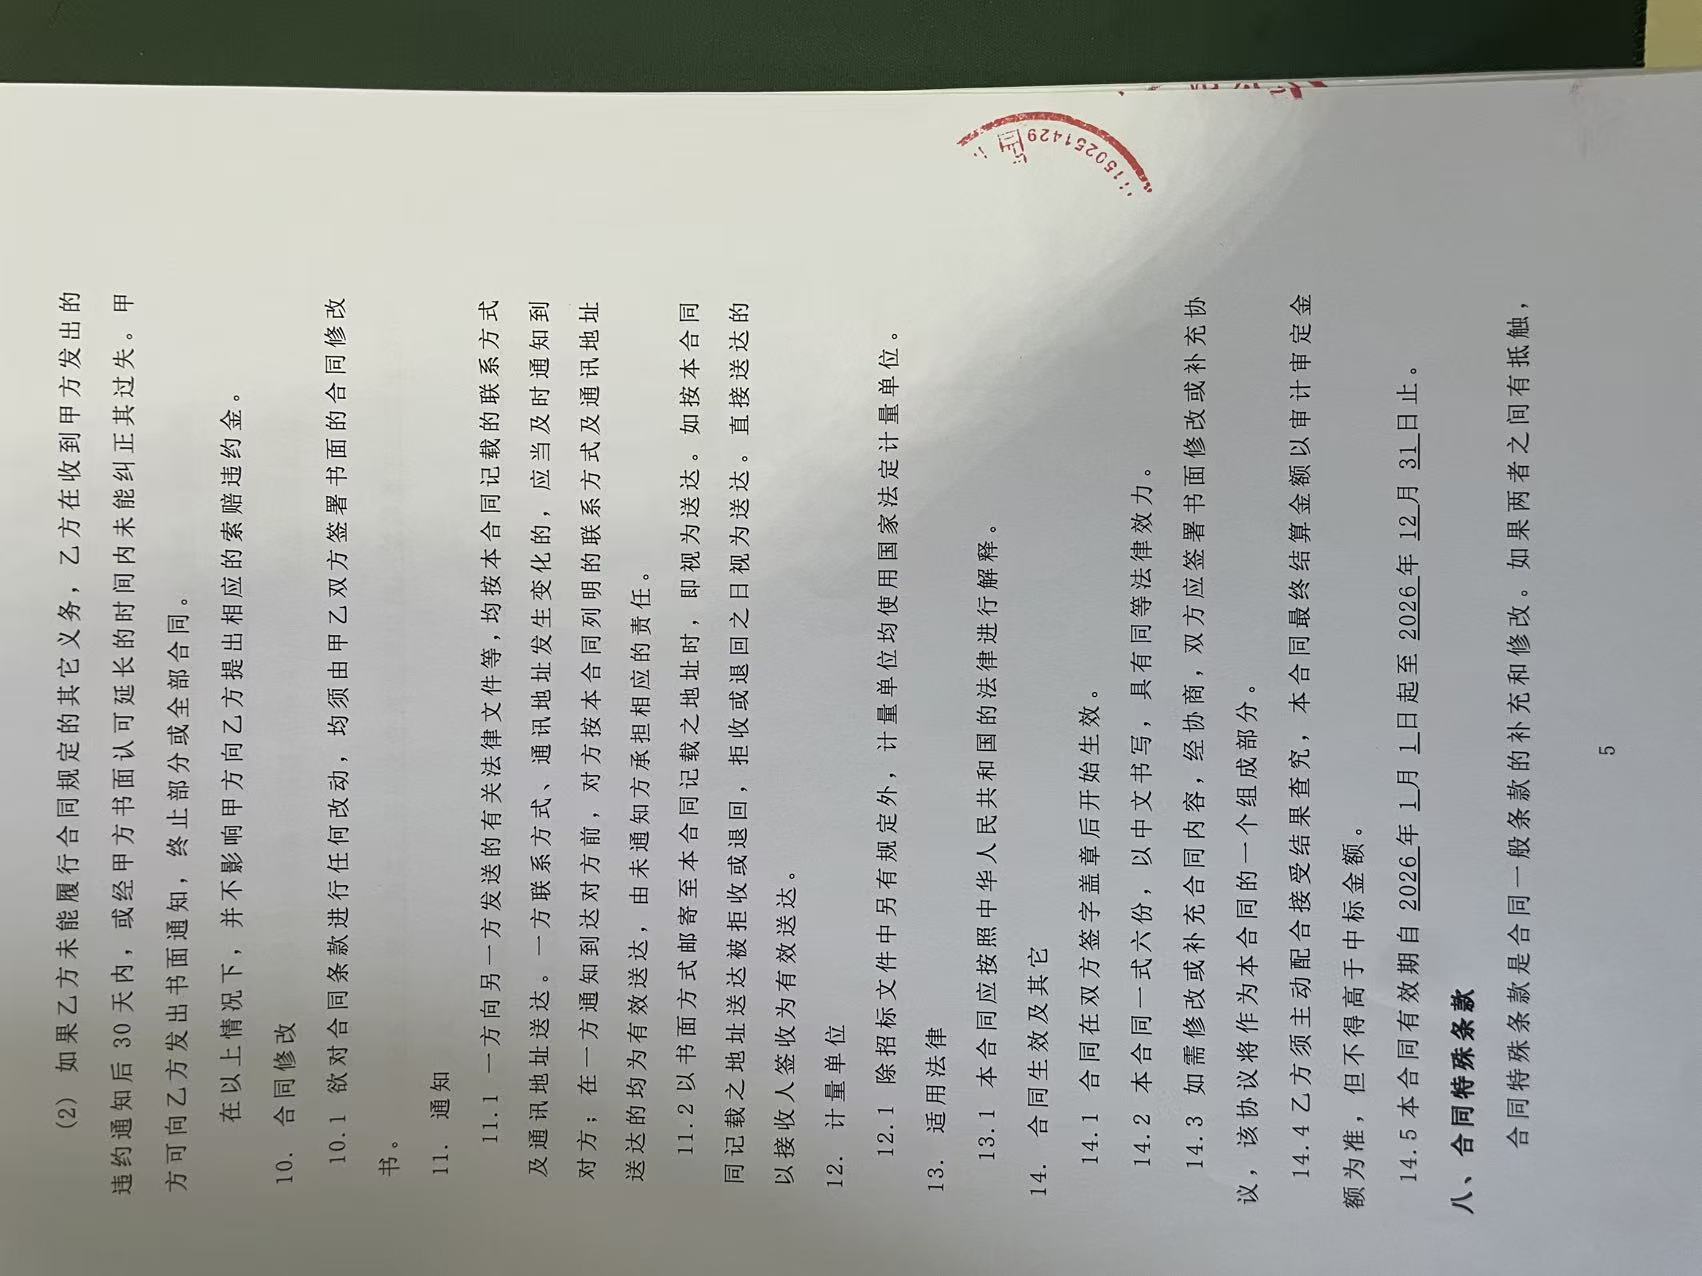 (2) 如果乙方未能履行合同规定的其它义务，乙方在收到甲方发出的
违约通知后 30 天内，或经甲方书面认可延长的时间内未能纠正其过失。甲
方可向乙方发出书面通知，终止部分或全部合同。
在以上情况下，并不影响甲方向乙方提出相应的索赔违约金。
10. 合同修改
10.1 欲对合同条款进行任何改动，均须由甲乙双方签署书面的合同修改
书。
11. 通知
11.1 一方向另一方发送的有关法律文件等，均按本合同记载的联系方式
及通讯地址送达。一方联系方式、通讯地址发生变化的，应当及时通知到
对方；在一方通知到达对方前，对方按本合同列明的联系方式及通讯地址
送达的均为有效送达，由未通知方承担相应的责任。
11.2 以书面方式邮寄至本合同记载之地址时，即视为送达。如按本合同
同记载之地址送达被拒收或退回，拒收或退回之日视为送达。直接送达的
以接收人签收为有效送达。
12. 计量单位
12.1 除招标文件中另有规定外，计量单位均使用国家法定计量单位。
13. 适用法律
13.1 本合同应按照中华人民共和国的法律进行解释。
14. 合同生效及其它
14.1 合同在双方签字盖章后开始生效。
14.2 本合同一式六份，以中文书写，具有同等法律效力。
14.3 如需修改或补充合同内容，经协商，双方应签署书面修改或补充协
议，该协议将作为本合同的一个组成部分。
14.4 乙方须主动配合接受结果查究，本合同最终结算金额以审计审定金
额为准，但不得高于中标金额。
14.5 本合同有效期自 2026 年 1 月 1 日起至 2026 年 12 月 31 日止。
八、合同特殊条款
合同特殊条款是合同一般条款的补充和修改。如果两者之间有抵触，
5
150251429